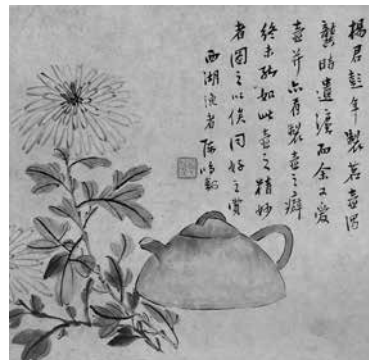 楊君彭年製茗壺得
龔時遺灋而余又愛
壺并亦有製壺之癖
終未能如此壺之精妙
者圖之以俟同好之賞
西湖漁者陳鴻壽